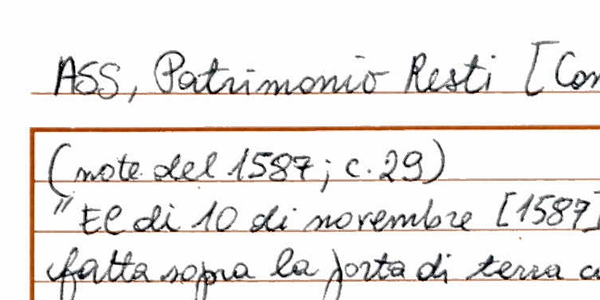 ASS, Patrimonio Resti [Con
(note del 1587; c. 29)
"El di 10 di novembre [1587]
fatta sopra la porta di terra